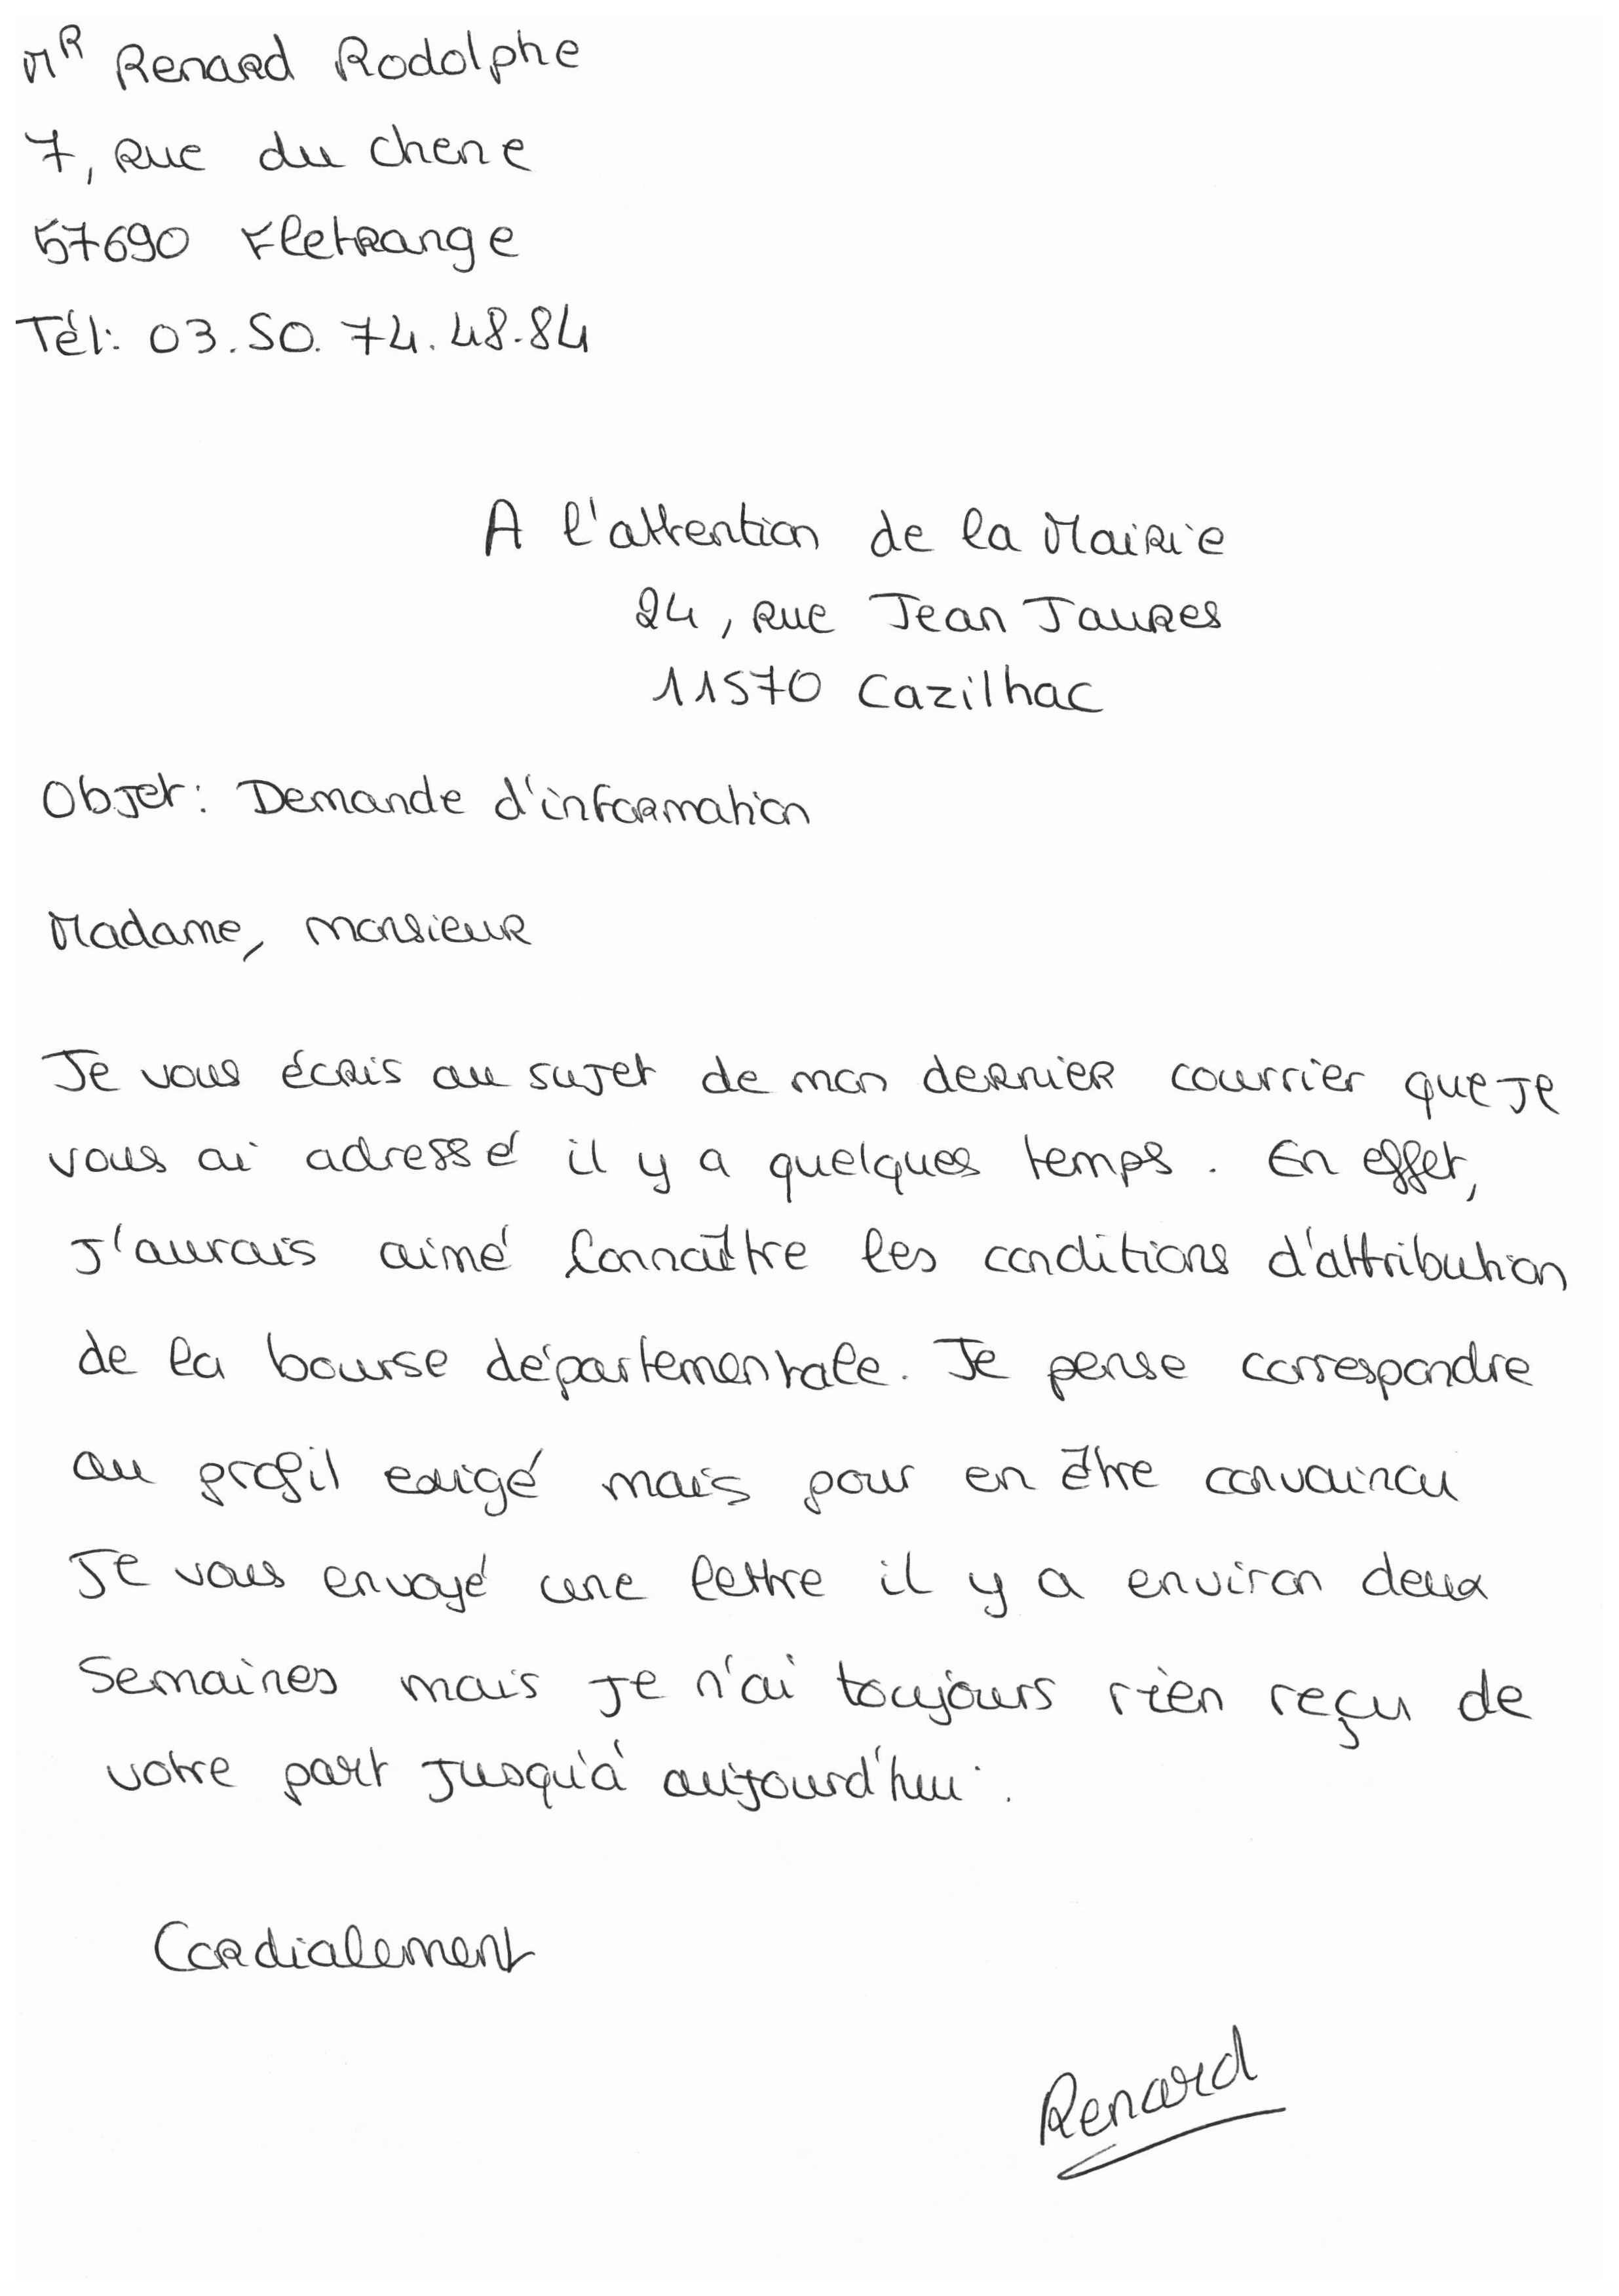 Mr Renard Rodolphe
7, Rue du chene
57690 Fletrange
Tél: 03.50.74.48.84
A l'attention de la Mairie
24, Rue Jean Jaures
11570 Cazilhac
Objet: Demande d'information
Madame, monsieur
Je vous écris au sujet de mon dernier courrier que je
vous ai adressé il y a quelques temps. En effet,
j'aurais aimé connaître les conditions d'attribution
de la bourse départementale. Je pense correspondre
au profil exigé mais pour en être convaincu
je vous envoyé une lettre il y a environ deux
semaines mais je n'ai toujours rien reçu de
votre part jusqu'à aujourd'hui.
Cordialement
Renard